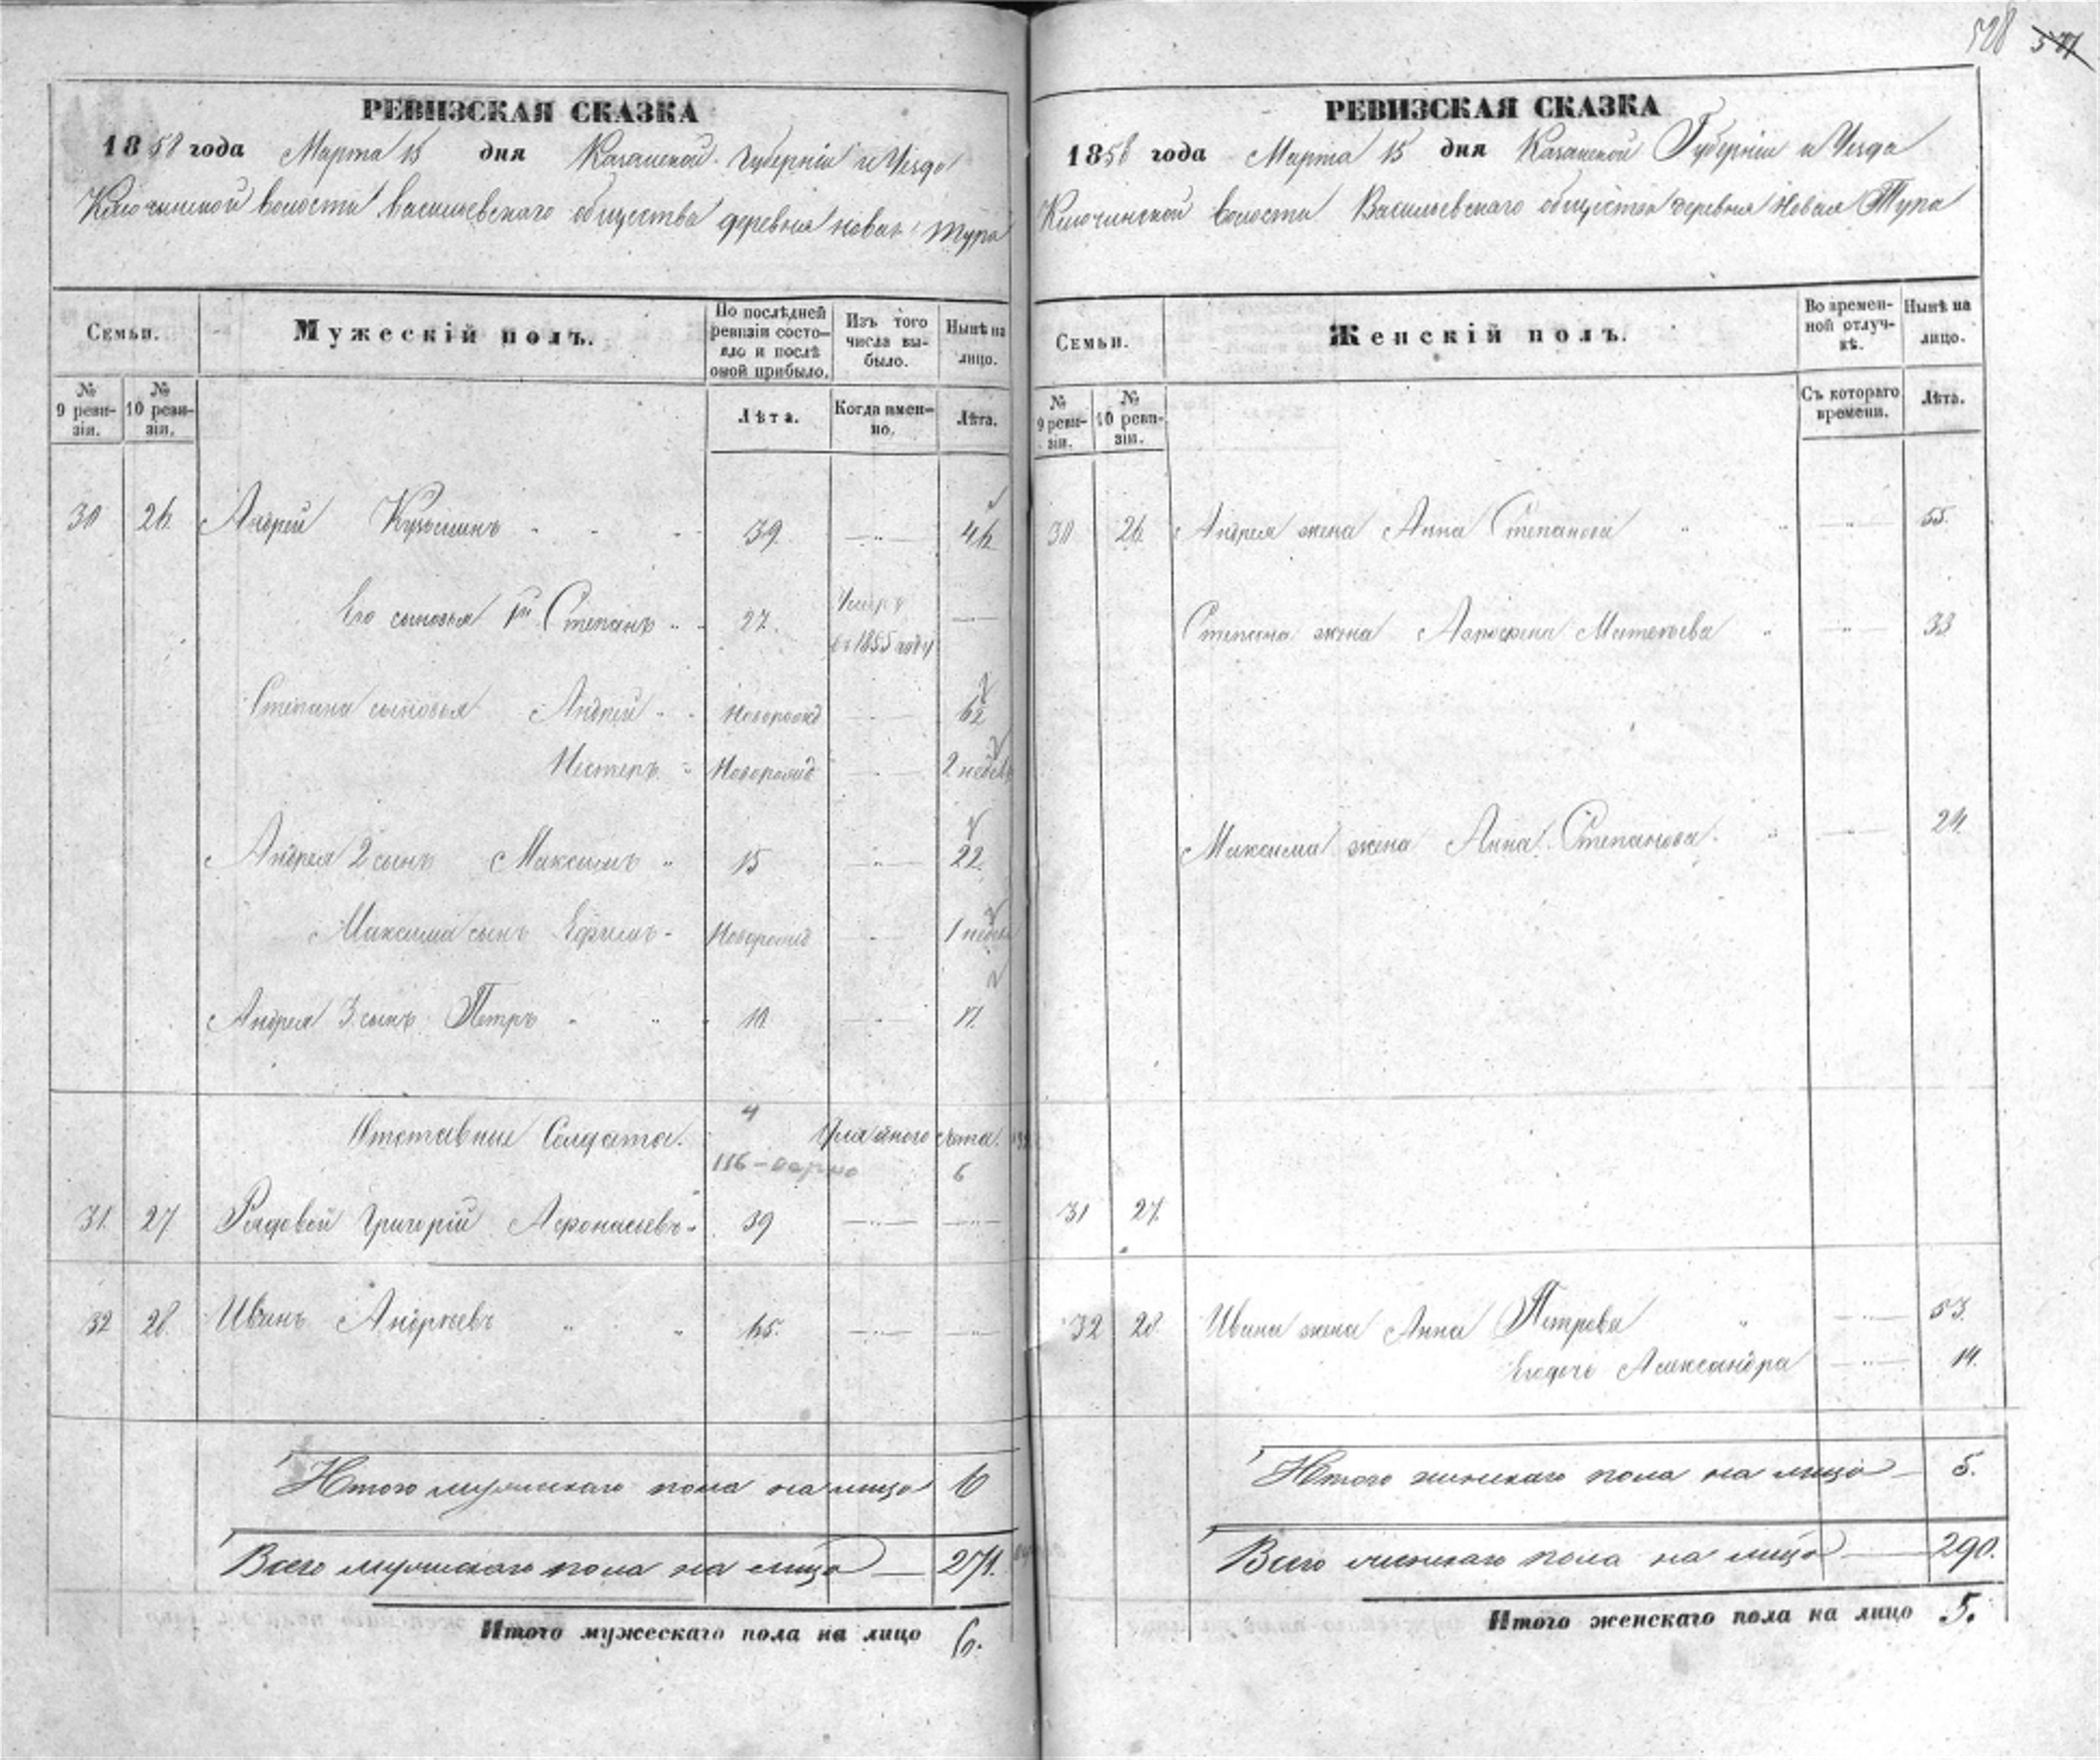 528 571
РЕВИЗСКАЯ СКАЗКА
1858 года Марта 15 дня Казанской Губерніи и Уезда
Ключинской волости Васильевскаго общества деревня новая тура
Семьи.
Мужескій полъ.
По послѣдней ревизіи состояло и послѣ оной прибыло.
Изъ того числа выбыло.
Нынѣ на лицо.
№ 9 ревизіи.
№ 10 ревизіи.
Лѣта.
Когда именно.
Лѣта.
30 26 Андрей Кузьминъ 39 46
Его сыновья 1й Степанъ 27 Умеръ
въ 1855 году
Степана сыновья Андрей Новорожд 6½
Нестеръ Новорожд 2 недель
Андрея 2 сынъ Максимъ 15 22
Максима сынъ Ефимъ Новорожд 1 недель
Андрея 3 сынъ Петръ 10 17
4
Отставные Солдаты. счета.
116 6
31 27 Рядовой Григорій Афонасьевъ 39
32 28 Иванъ Андреевъ 65
Итого мужескаго пола на лицо 6
Всего мужскаго пола на лицо 271.
Итого мужескаго пола на лицо 6.
РЕВИЗСКАЯ СКАЗКА
1858 года Марта 15 дня Казанской Губерніи и Уезда
Ключинской волости Васильевскаго общества деревня Новая Тура
Семьи.
Женскій полъ.
Во временной отлучкѣ.
Нынѣ на лицо.
№ 9 ревизіи.
№ 10 ревизіи.
Съ котораго времени.
Лѣта.
30 26 Андрея жена Анна Степанова 55.
Степана жена Матвеева 33
Максима жена Анна Степанова 24.
31 27
32 28 Ивана жена Анна Петрова 53.
Его дочь Александра 14.
Итого женскаго пола на лицо 5.
Всего женскаго пола на лицо 290.
Итого женскаго пола на лицо 5.